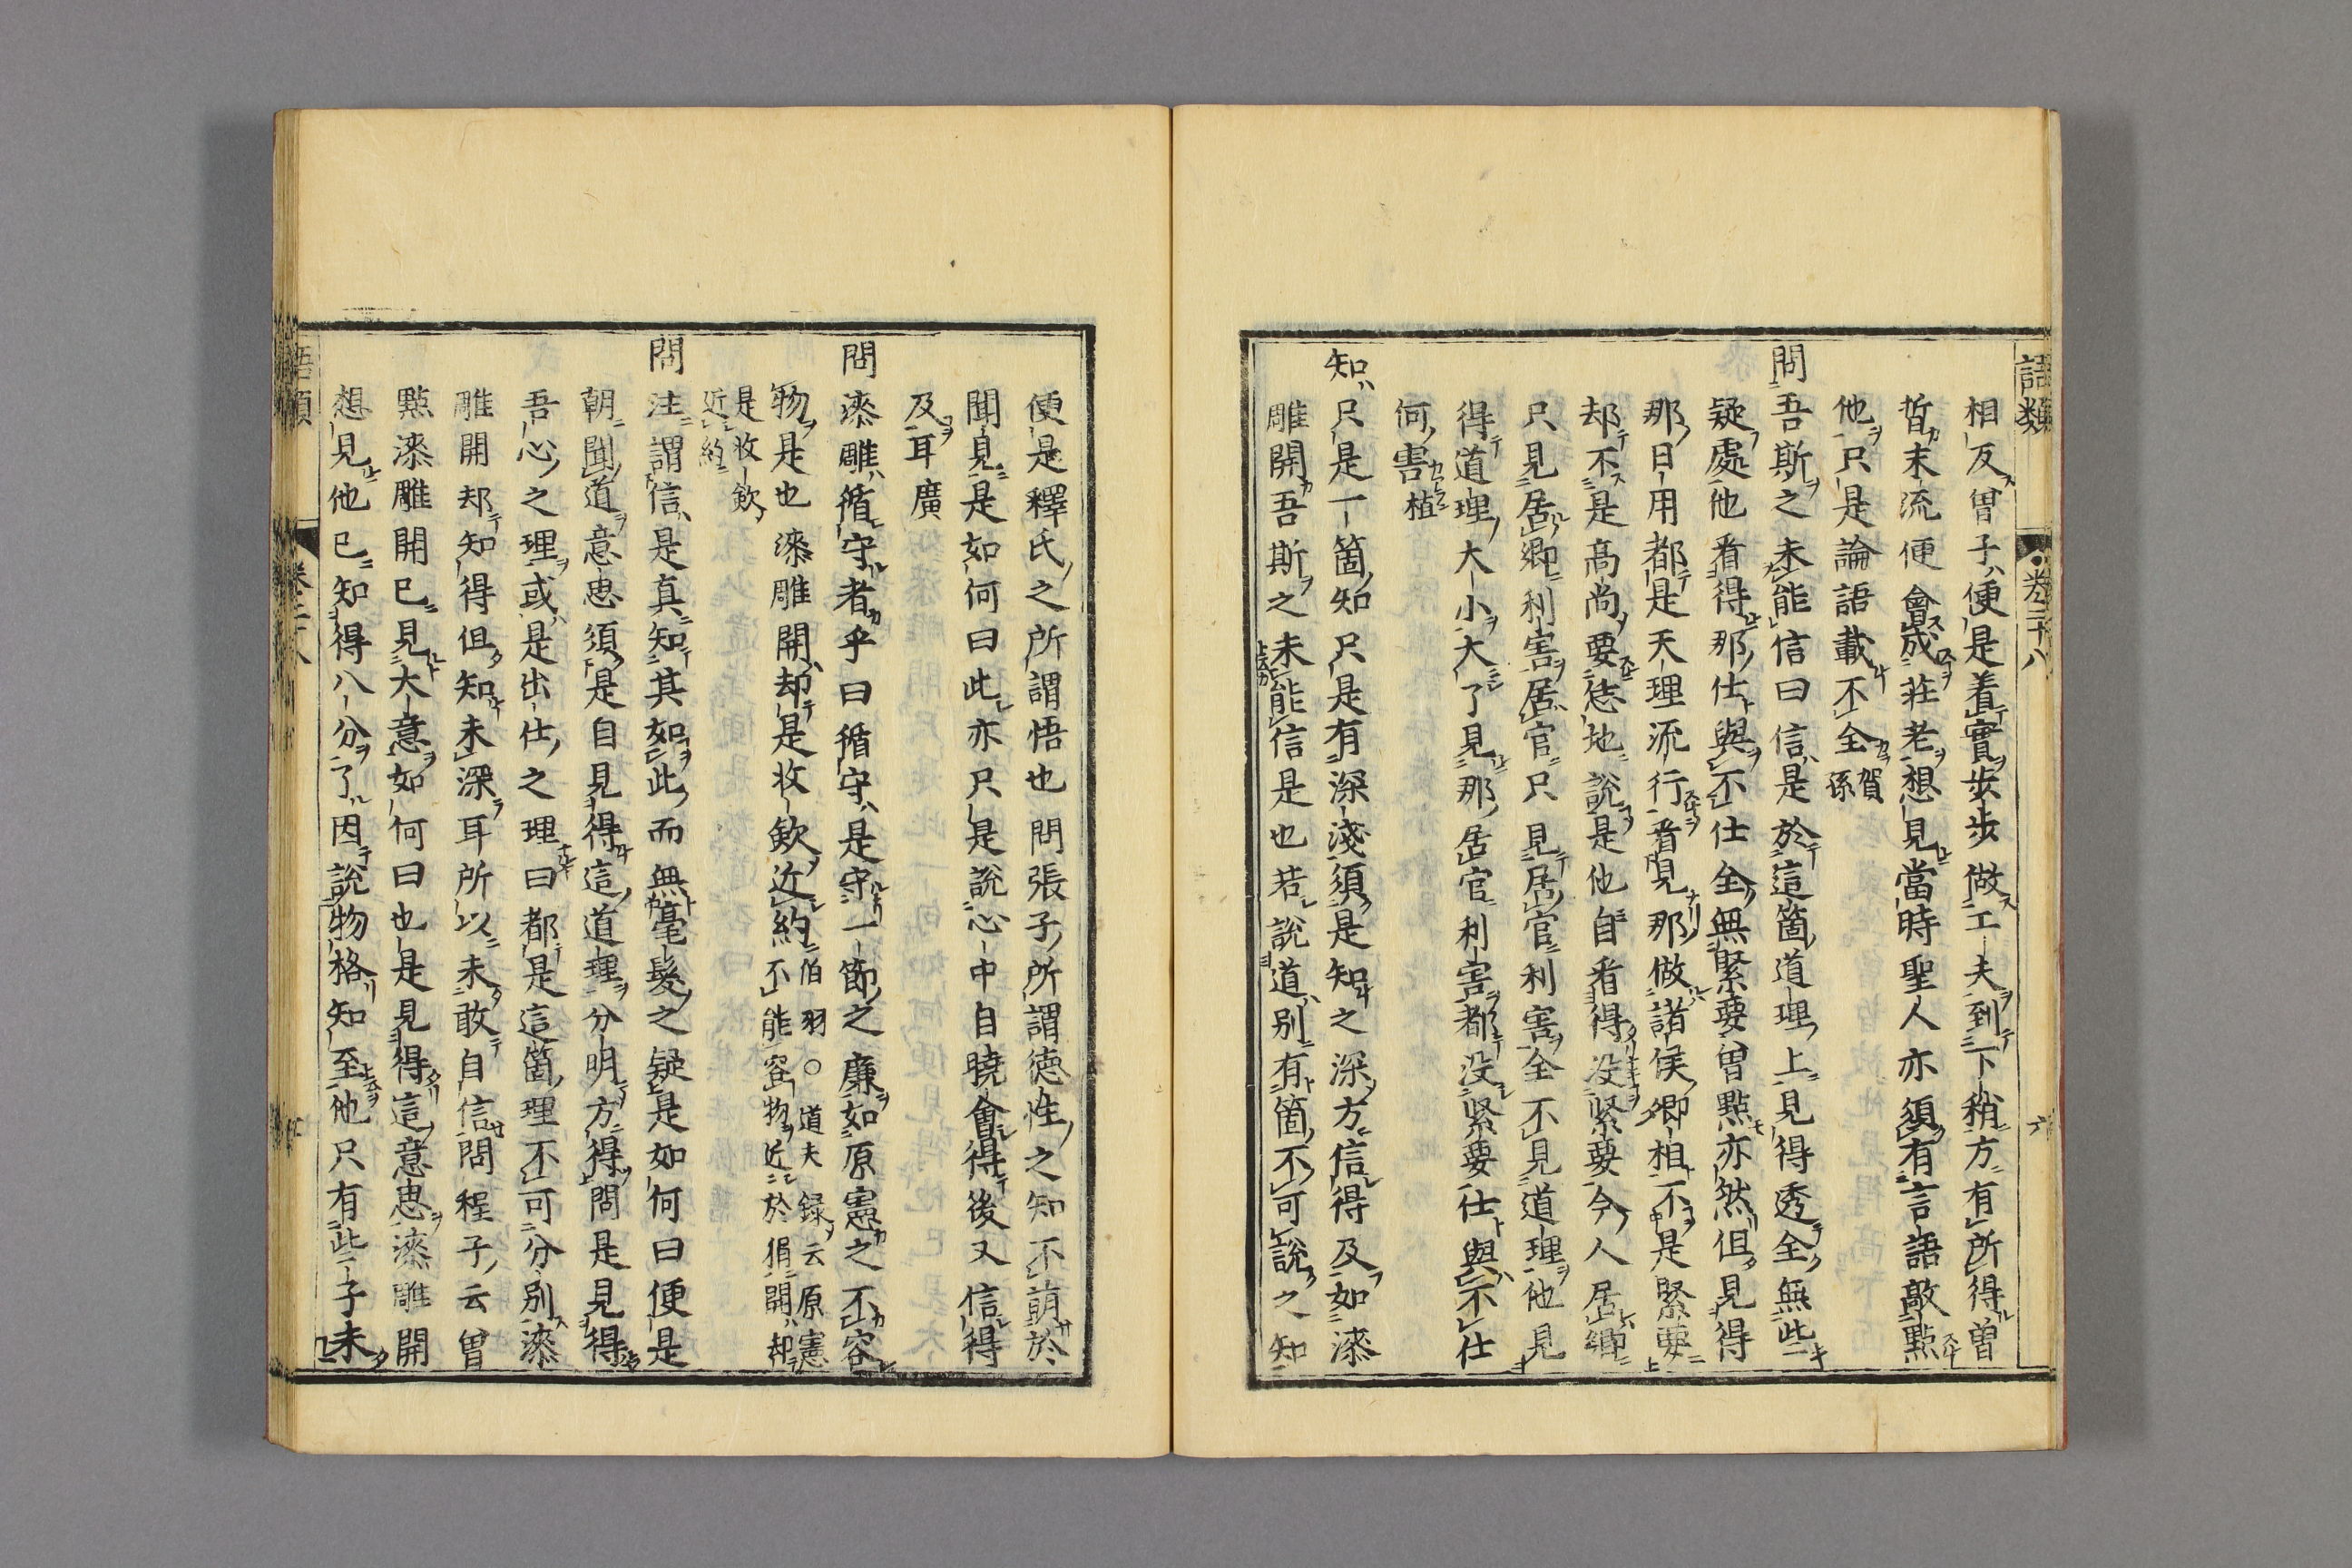 語類　卷二十八
相反曾子便是着實步步做工夫到下稍方有所得曾
晳末流便會成莊老想見當時聖人亦須有言語敲點
他只是論語載不全賀孫
問吾斯之未能信曰信是於這箇道理上見得透全無些
疑處他看得那仕與不仕全無緊要曾點亦然但見得
那日用都是天理流行看見那做諸侯卿相不是緊要
却不是高尚要恁地說是他自看得没緊要今人居卿
只見居卿利害居官只見居官利害全不見道理他見
得道理大小大了見那居官利害都没緊要仕與不仕
何害植
知只是一箇知只是有深淺須是知之深方信得及如漆
雕開吾斯之未能信是也若說道別有箇不可說之知
便是釋氏之所謂悟也問張子所謂德性之知不萌於
聞見是如何曰此亦只是說心中自曉會得後又信得
及耳廣
問漆雕循守者乎曰循守是守一節之廉如原憲之不容
物是也漆雕開却是收斂近約伯羽○道夫録云原憲不能容物近於狷開却
是收斂近約
問注謂信是真知其如此而無毫髮之疑是如何曰便是
朝聞道意思須是自見得這道理分明方得問是見得
吾心之理或是出仕之理曰都是這箇理不可分別漆
雕開却知得但知未深耳所以未敢自信問程子云曾
點漆雕開已見大意如何曰也是見得這意思漆雕開
想見他已知得八分了因說物格知至他只有些子未
語類　卷二十八